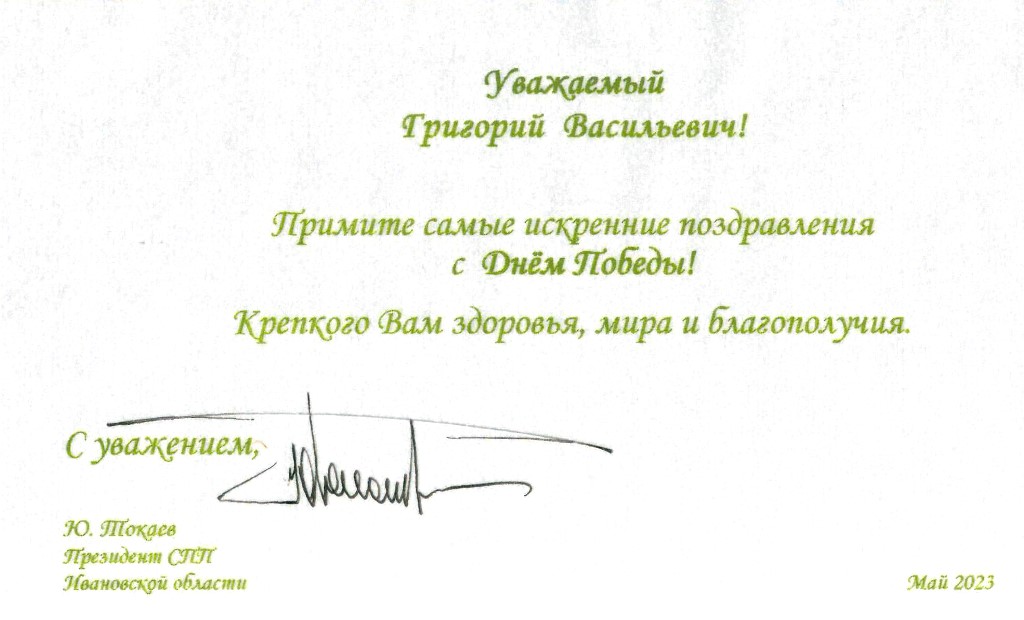 Уважаемый
Григорий Васильевич!
Примите самые искренние поздравления
с Днём Победы!
Крепкого Вам здоровья, мира и благополучия.
С уважением,
Ю. Токаев
Президент СПП
Ивановской области
Май 2023